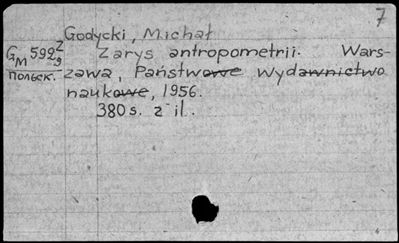 7
Godycki, Michał
G M 592 2/9 Zarys antropometrii. Wars-
польск. zawa, Państwowe wydawnictwo
naukowe, 1956.
380 s. z il.